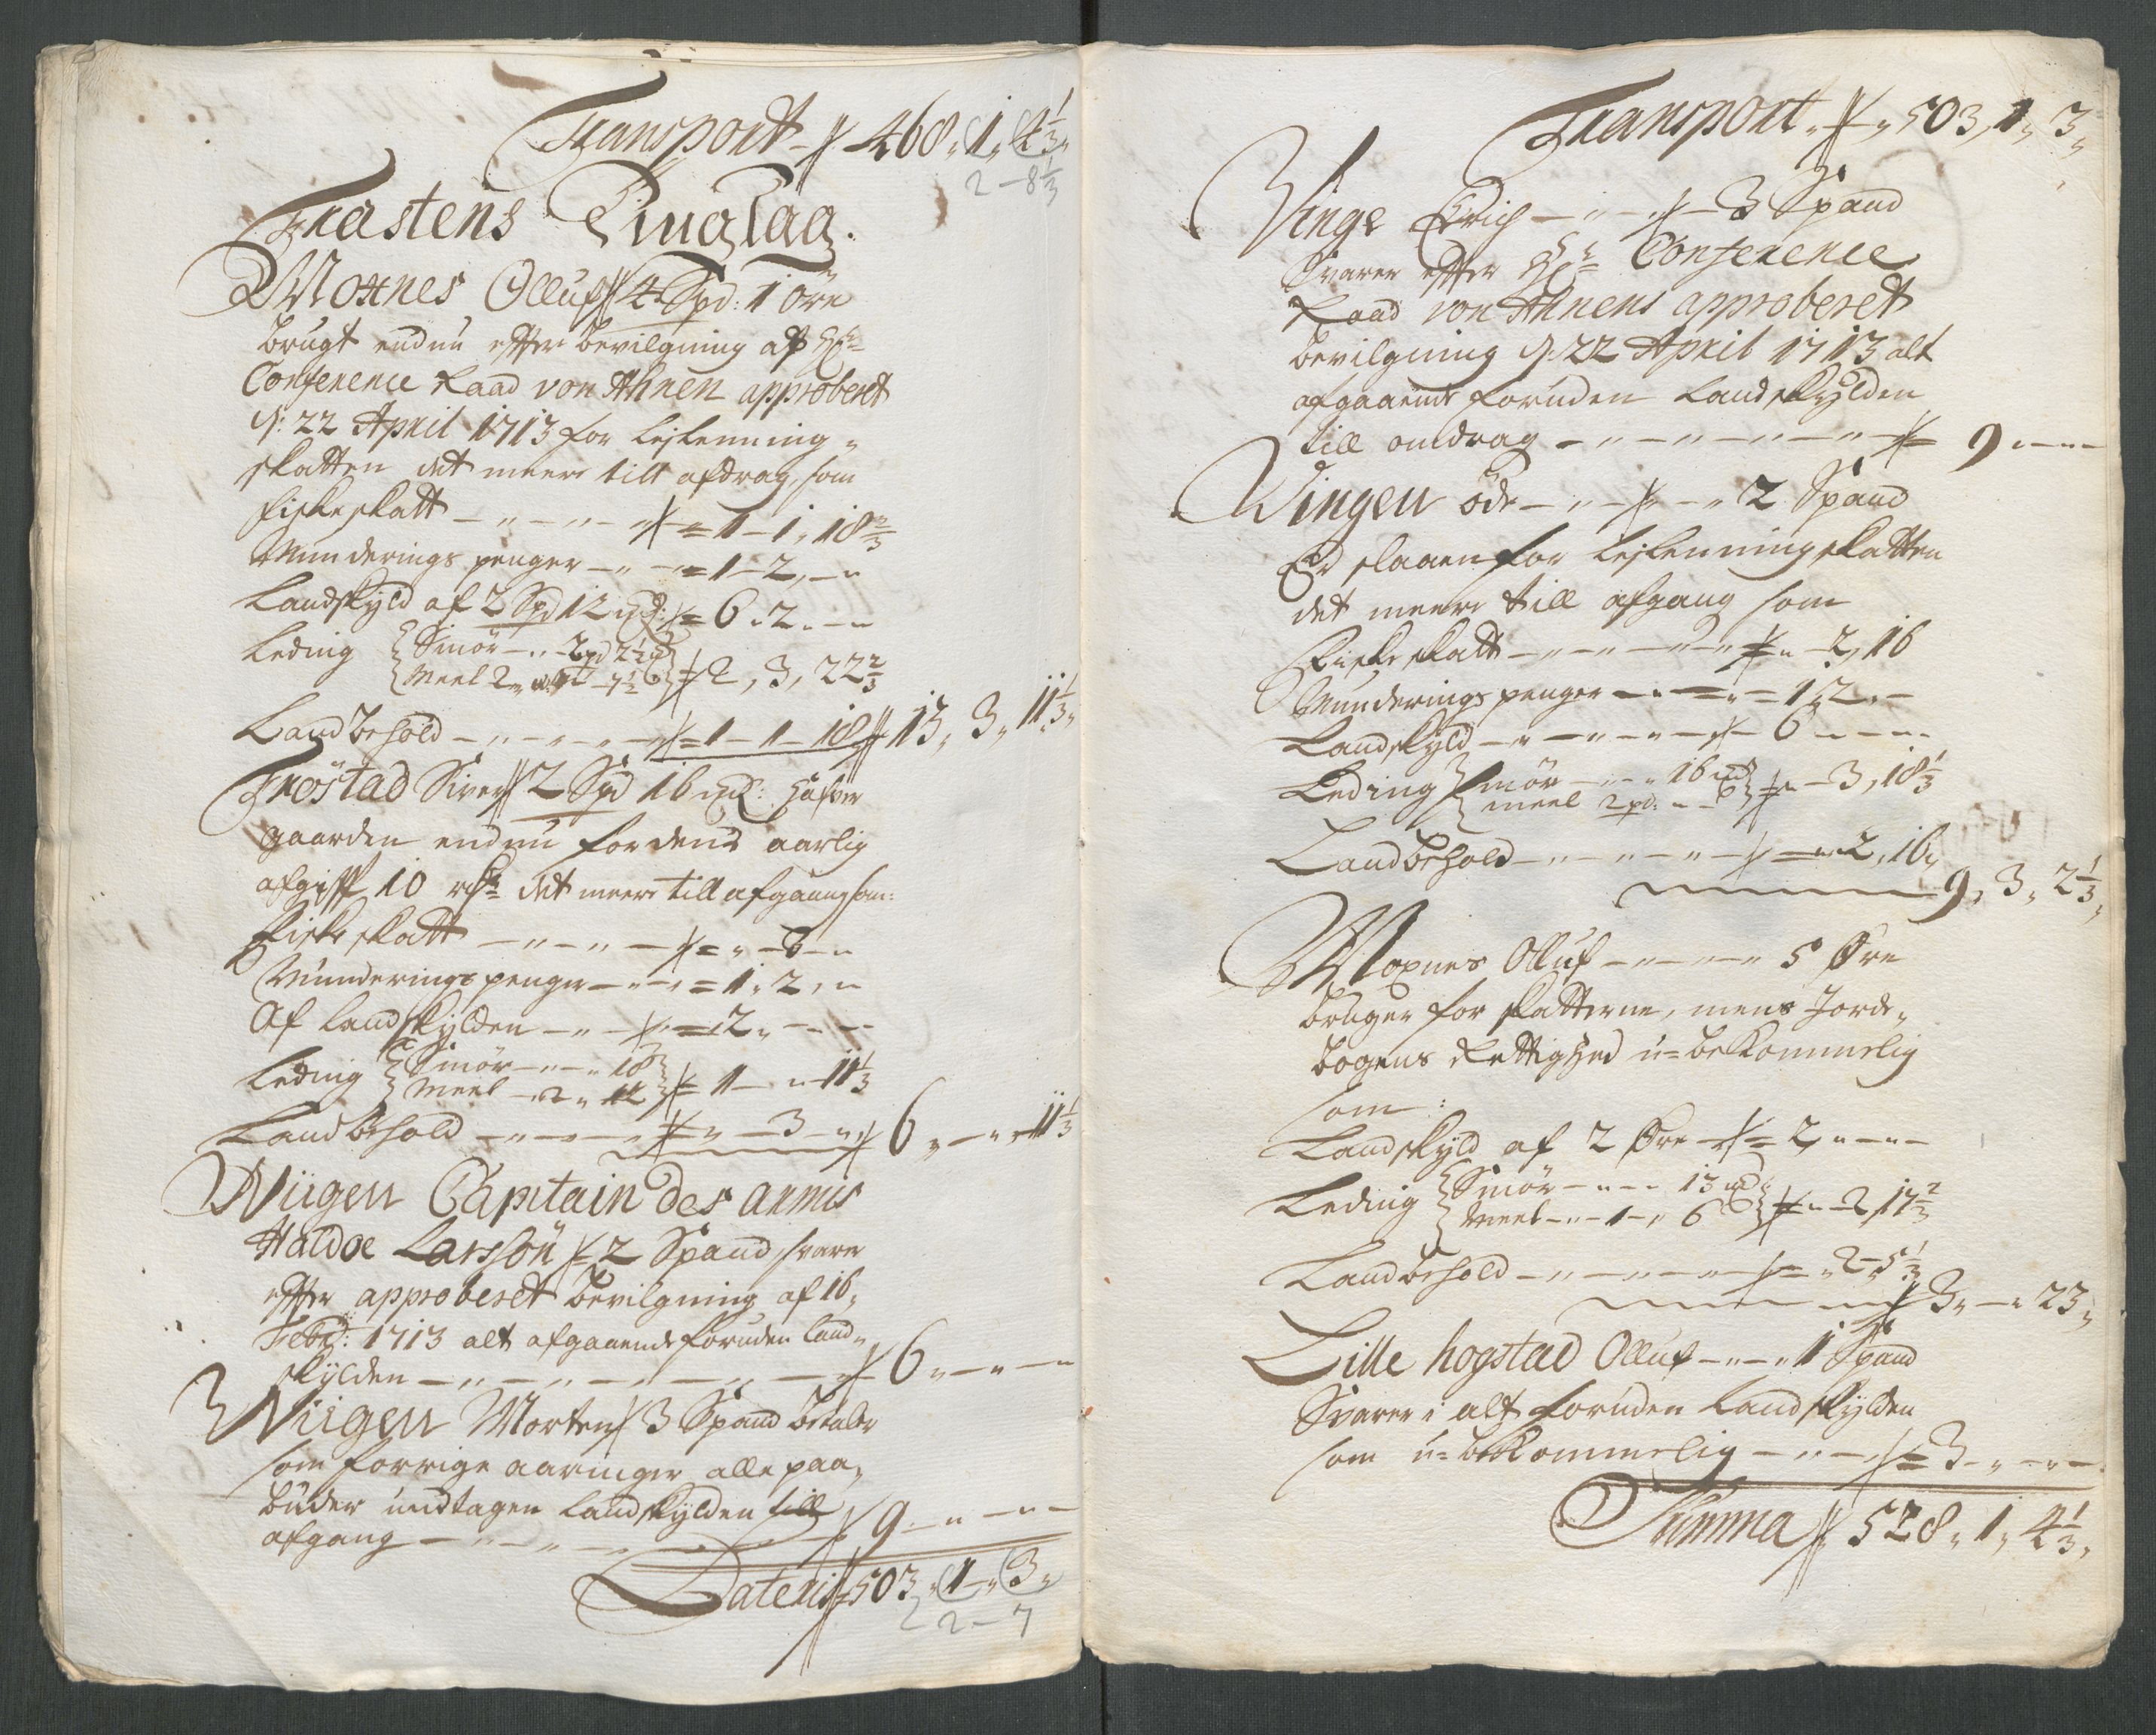 Transport 468 „ 1 „ 4 1/3 „
2 – 8 1/3
Frastens Tinglag.
Moxnes Olluf 4 Spd: 1 öre
brugt endnu efter bevilgning af Hr
Conference Raad von Ahnen approberet
d: 22 April 1713 for lejlenning„
skatten det meere till afdrag, som
fiskeskatt – „ – „ – 1 – 1 „ 18 2/3
Munderings penger – „ – 1 – 2 „ – „
Landskyld af 2 Spd 12 md: 6 „ 2 „ – „
Leding Smör – „ – 2 pd 2 1/2 md
Meel 2 7 1/2 2 „ 3 „ 22 2/3
Landbohold – „ – „ – 1 – 1 – 18 13 „ 3 „ 11 1/3 „
Fröstad Siver 2 Spd 16 md: hafver
gaarden endnu for dend aarlig
afgifft 10 rdr det meere till afgaang som:
fiskeskatt – „ – „ – 3 – „
Munderings penger – „ – 1 „ 2 „ „
Af landskylden – „ – 2 „ – „ –
Leding Smör – „ – „ 18
Meel – 2 „ 12 1 – „ – 11 1/3
Landbohold – „ – „ – 3 – „ 6 „ – „ 11 1/3
Wiigen Capitain des armis
Haldoe Larssön 2 Spand svarer
efter approberet bevilgning af 16„
Febr: 1713 alt afgaaende foruden land„
skylden – „ – „ – „ – 6 „ – „ –
Wiigen Morten 3 Spand betaler
som forrige aaringer alle paa„
buder undtagen landskylden till
afgang – „ – „ – 9 – „ – „ –
Lateris 503 „ 1 – „ 3 „
2 – 7
Transport „ 503 „ 1 „ 3 „
Vinge Erich – „ – 3 Spand
Svarer efter Hr Conference
Raad von Ahnens approberet
bevilgning d: 22 April 1713 alt
afgaaende foruden landskylden
till omdrag – „ – „ – „ – „ – 9 – „ –
Wingen öde – „ – „ – „ 2 Spand
Er slaaen for lejlenningskatten
det meere till afgang som
Fiskeskatt – „ – „ – „ – 2 „ 16
Munderings penger – „ – „ – 1 „ 2 „ –
Landskyld – „ – „ – „ – 6 – „ – „
Leding Smör – „ – „ 16 md
meel 2 pd: „ – 6 – 3 „ 18 1/3
Landbohold – „ – „ – „ – 2 „ 16 „
9 „ 3 „ 2 1/3 „
Moxnes Olluf – „ – „ – „ 5 Øre
bruger for skatterne, mens Jorde„
bogens Rettighed u-bekommelig
som:
Landskyld af 2 Øre – 2 „ – „ –
Leding Smör – „ – „ 13 md
Meel – „ – 1 – „ 6 – 2 „ 17 2/3
Landbohold – „ – „ – „ – 2 – 5 1/3
3 „ – „ 23 „
Lille hogstad Olluf – „ – „ 1 Spand
Svarer i alt foruden landskylden
som u-bekommelig – „ – 3 – „ – „ –
Summa 528 „ 1 „ 4 1/3 „